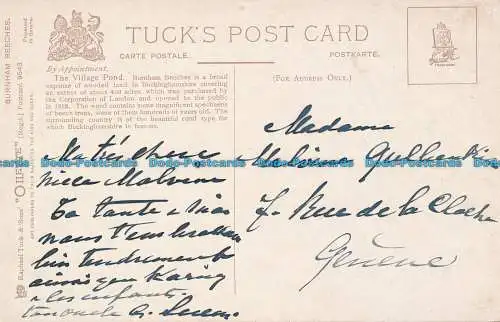 BURNHAM BEECHES.
TUCK'S POST CARD
CARTE POSTALE.
POSTKARTE.
By Appointment.
(FOR ADDRESS ONLY.)
The Village Pond. Burnham Beeches is a broad
expanse of wooded land in Buckinghamshire covering
an extent of about 400 acres, which was purchased by
the Corporation of London and opened to the public
in 1883. The wood contains some magnificent specimens
of beech trees, some of them hundreds of years old. The
surrounding country is of the beautiful rural type for
which Buckinghamshire is famous.
Raphael Tuck & Sons' "OILETTE" [Regd.] Postcard 9543
Ma très chère
nièce Malvine
Ta tante & moi
nous t'embrassons
bien tendrement
ainsi que Karing
& les enfants
ton oncle G.
Madame
Malvine
7. Rue de la Cloche
Genève
Dodo-Cards Dodo-Cards Dodo-Cards Dodo-Cards Dodo-Cards Dodo-Cards